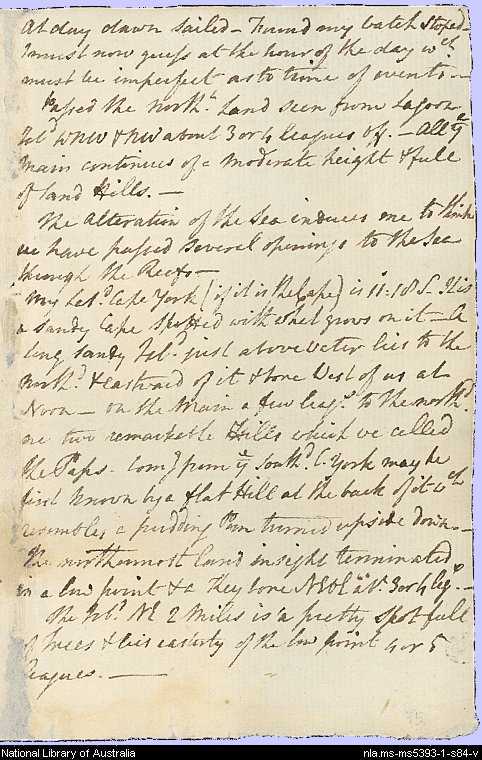 At day dawn sailed - Found my watch stoped -
I must now guess at the hour of the day wch
must be imperfect as to time of events -
Passed the northn. Land seen from Lagoon
Isld WNW & NW about 3 or 4 leagues off. - All ye
Main continues of a moderate height & full
of Sand Hills. -
The Alteration of the Sea induces me to think
we have passed several openings to the Sea
through the Reefs -
My Latd. Cape York (if it is the Cape) is 11:18 S. It is
a sandy Cape spotted with what grows on it - A
long sandy Isld. just above water lies to the
Northd. & Eastward of it & bore West of us at
Noon - on the Main a few leags. to the northd.
are two remarkable Hills which we called
the Paps. Comg from ye Southd. C. York may be
first known by a flat Hill at the back of it wch
resembles a pudding Pan turned upside down. -
The northernmost land in sight terminated
in a low point & a Key bore NWbN 3 or 4 legs. -
The Isld. NE 2 Miles is a pretty spot full
of Trees & lies easterly of the low point 4 or 5
leagues. -
National Library of Australia nla.ms-ms5393-1-s84-v